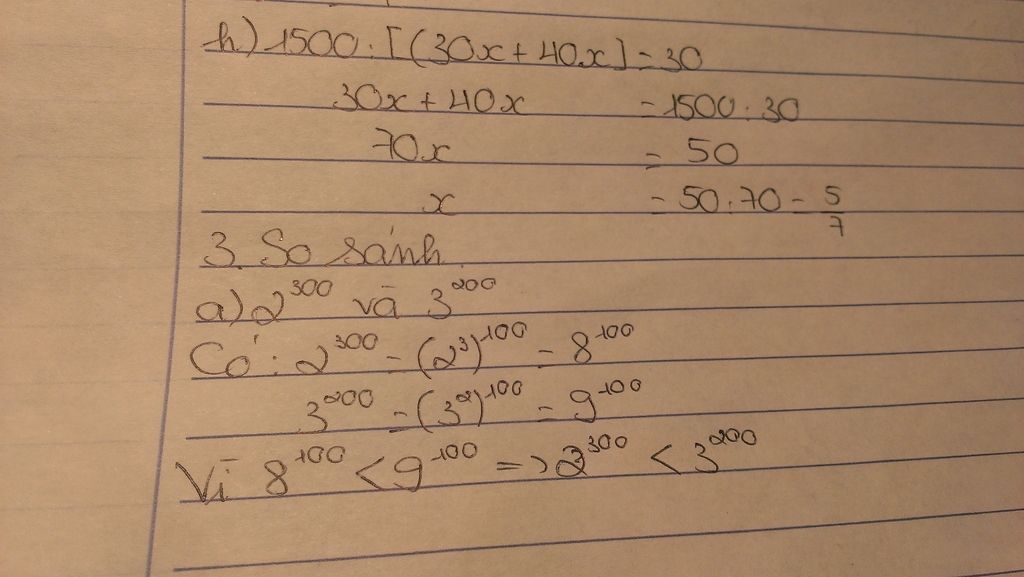 h) 1500 : [(30x + 40x] = 30
30x + 40x = 1500 : 30
70x = 50
x = 50 : 70 = 5/7
3. So sánh.
a) 2^300 và 3^200
Có : 2^300 = (2^3)^100 = 8^100
3^200 = (3^2)^100 = 9^100
Vì 8^100 < 9^100 => 2^300 < 3^200